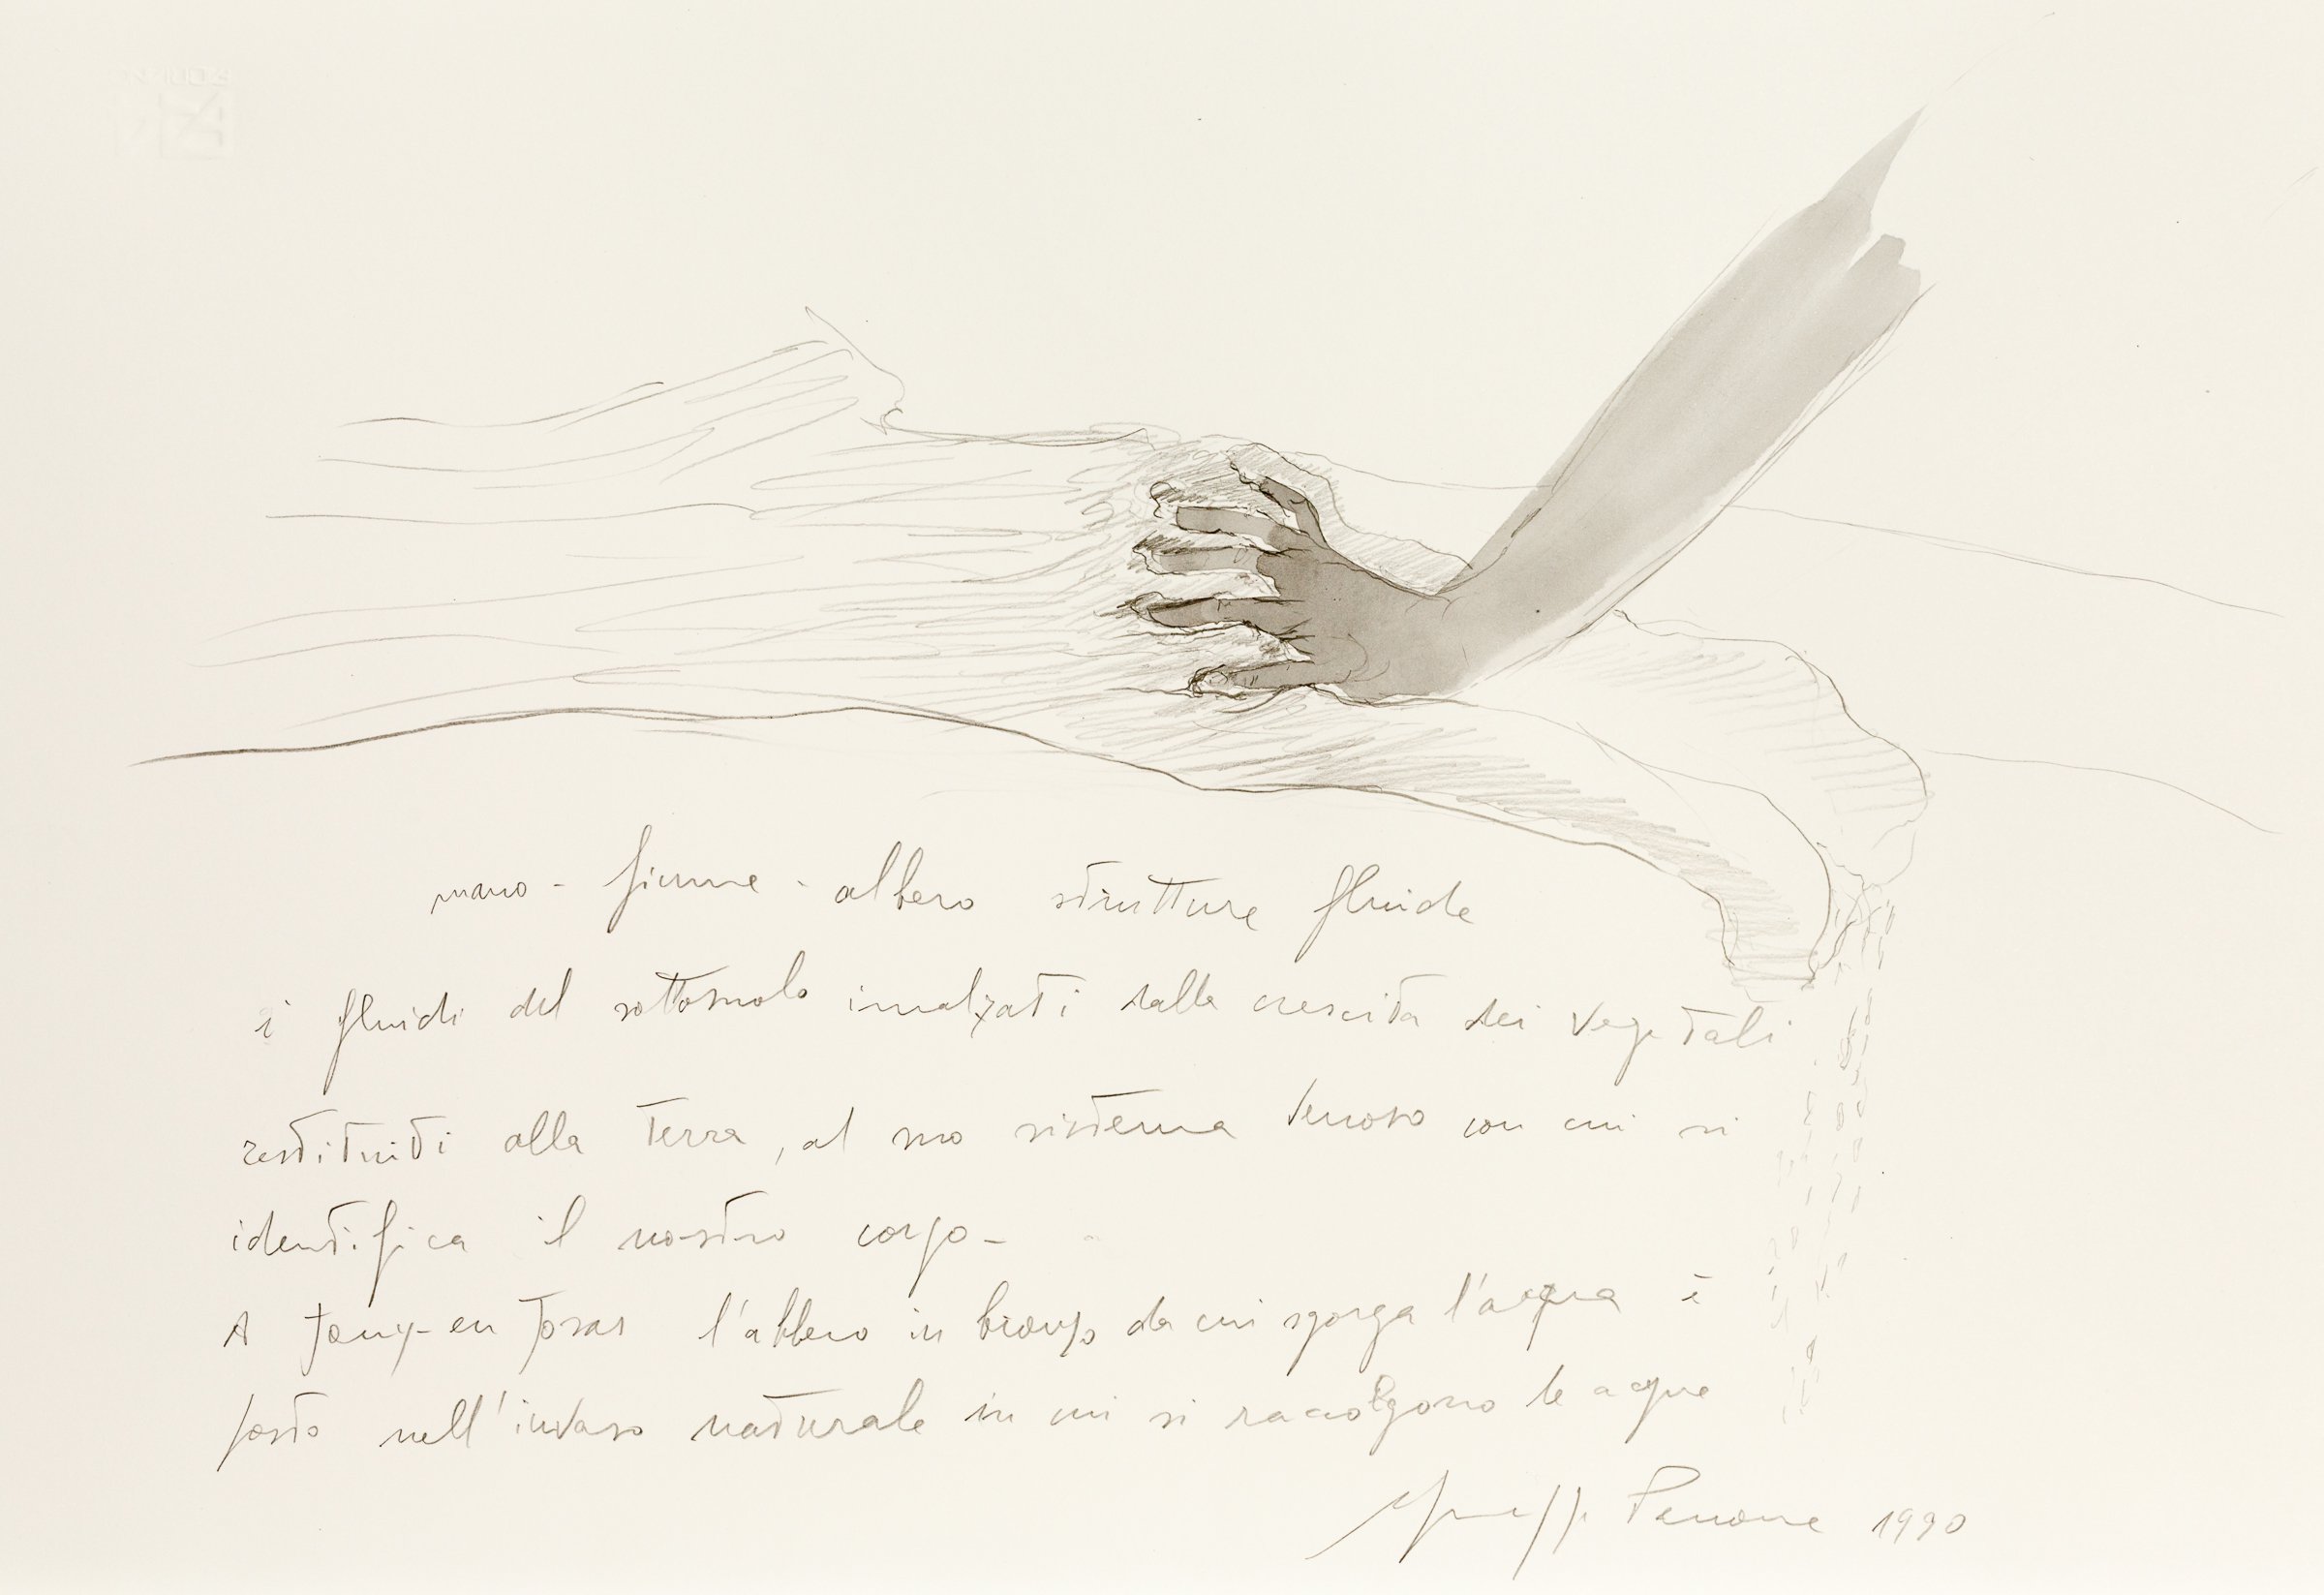 mano - fiume - albero strutture fluide
i fluidi del sottosuolo innalzati dalla crescita dei vegetali
restituiti alla terra, al suo sistema venoso con cui si
identifica il nostro corpo -
A Jouy-en Josas l'albero in bronzo da cui sgorga l'acqua è
posto nell'invaso naturale in cui si raccolgono le acque
Giuseppe Penone 1990